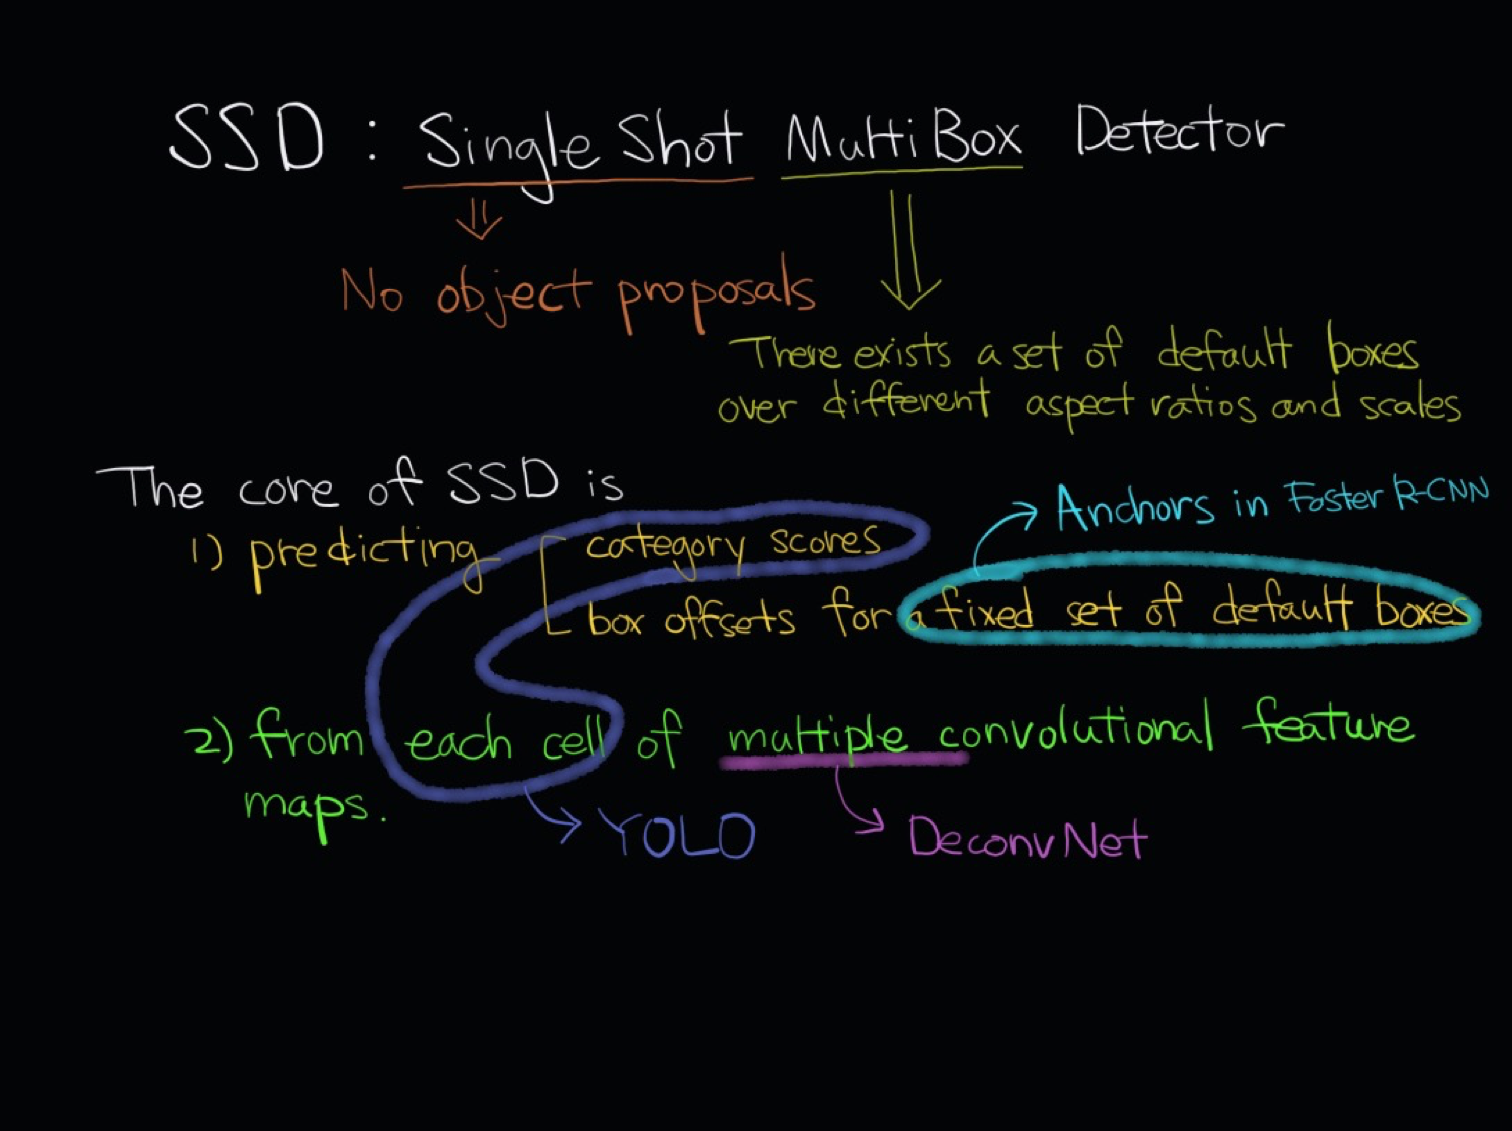 SSD : Single Shot MultiBox Detector
No object proposals
There exists a set of default boxes
over different aspect ratios and scales
The core of SSD is
Anchors in Faster R-CNN
1) predicting category scores
box offsets for a fixed set of default boxes
2) from each cell of multiple convolutional feature
maps.
YOLO
DeconvNet